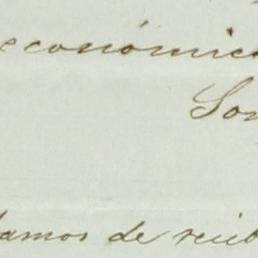 económica
Son
damos de recib